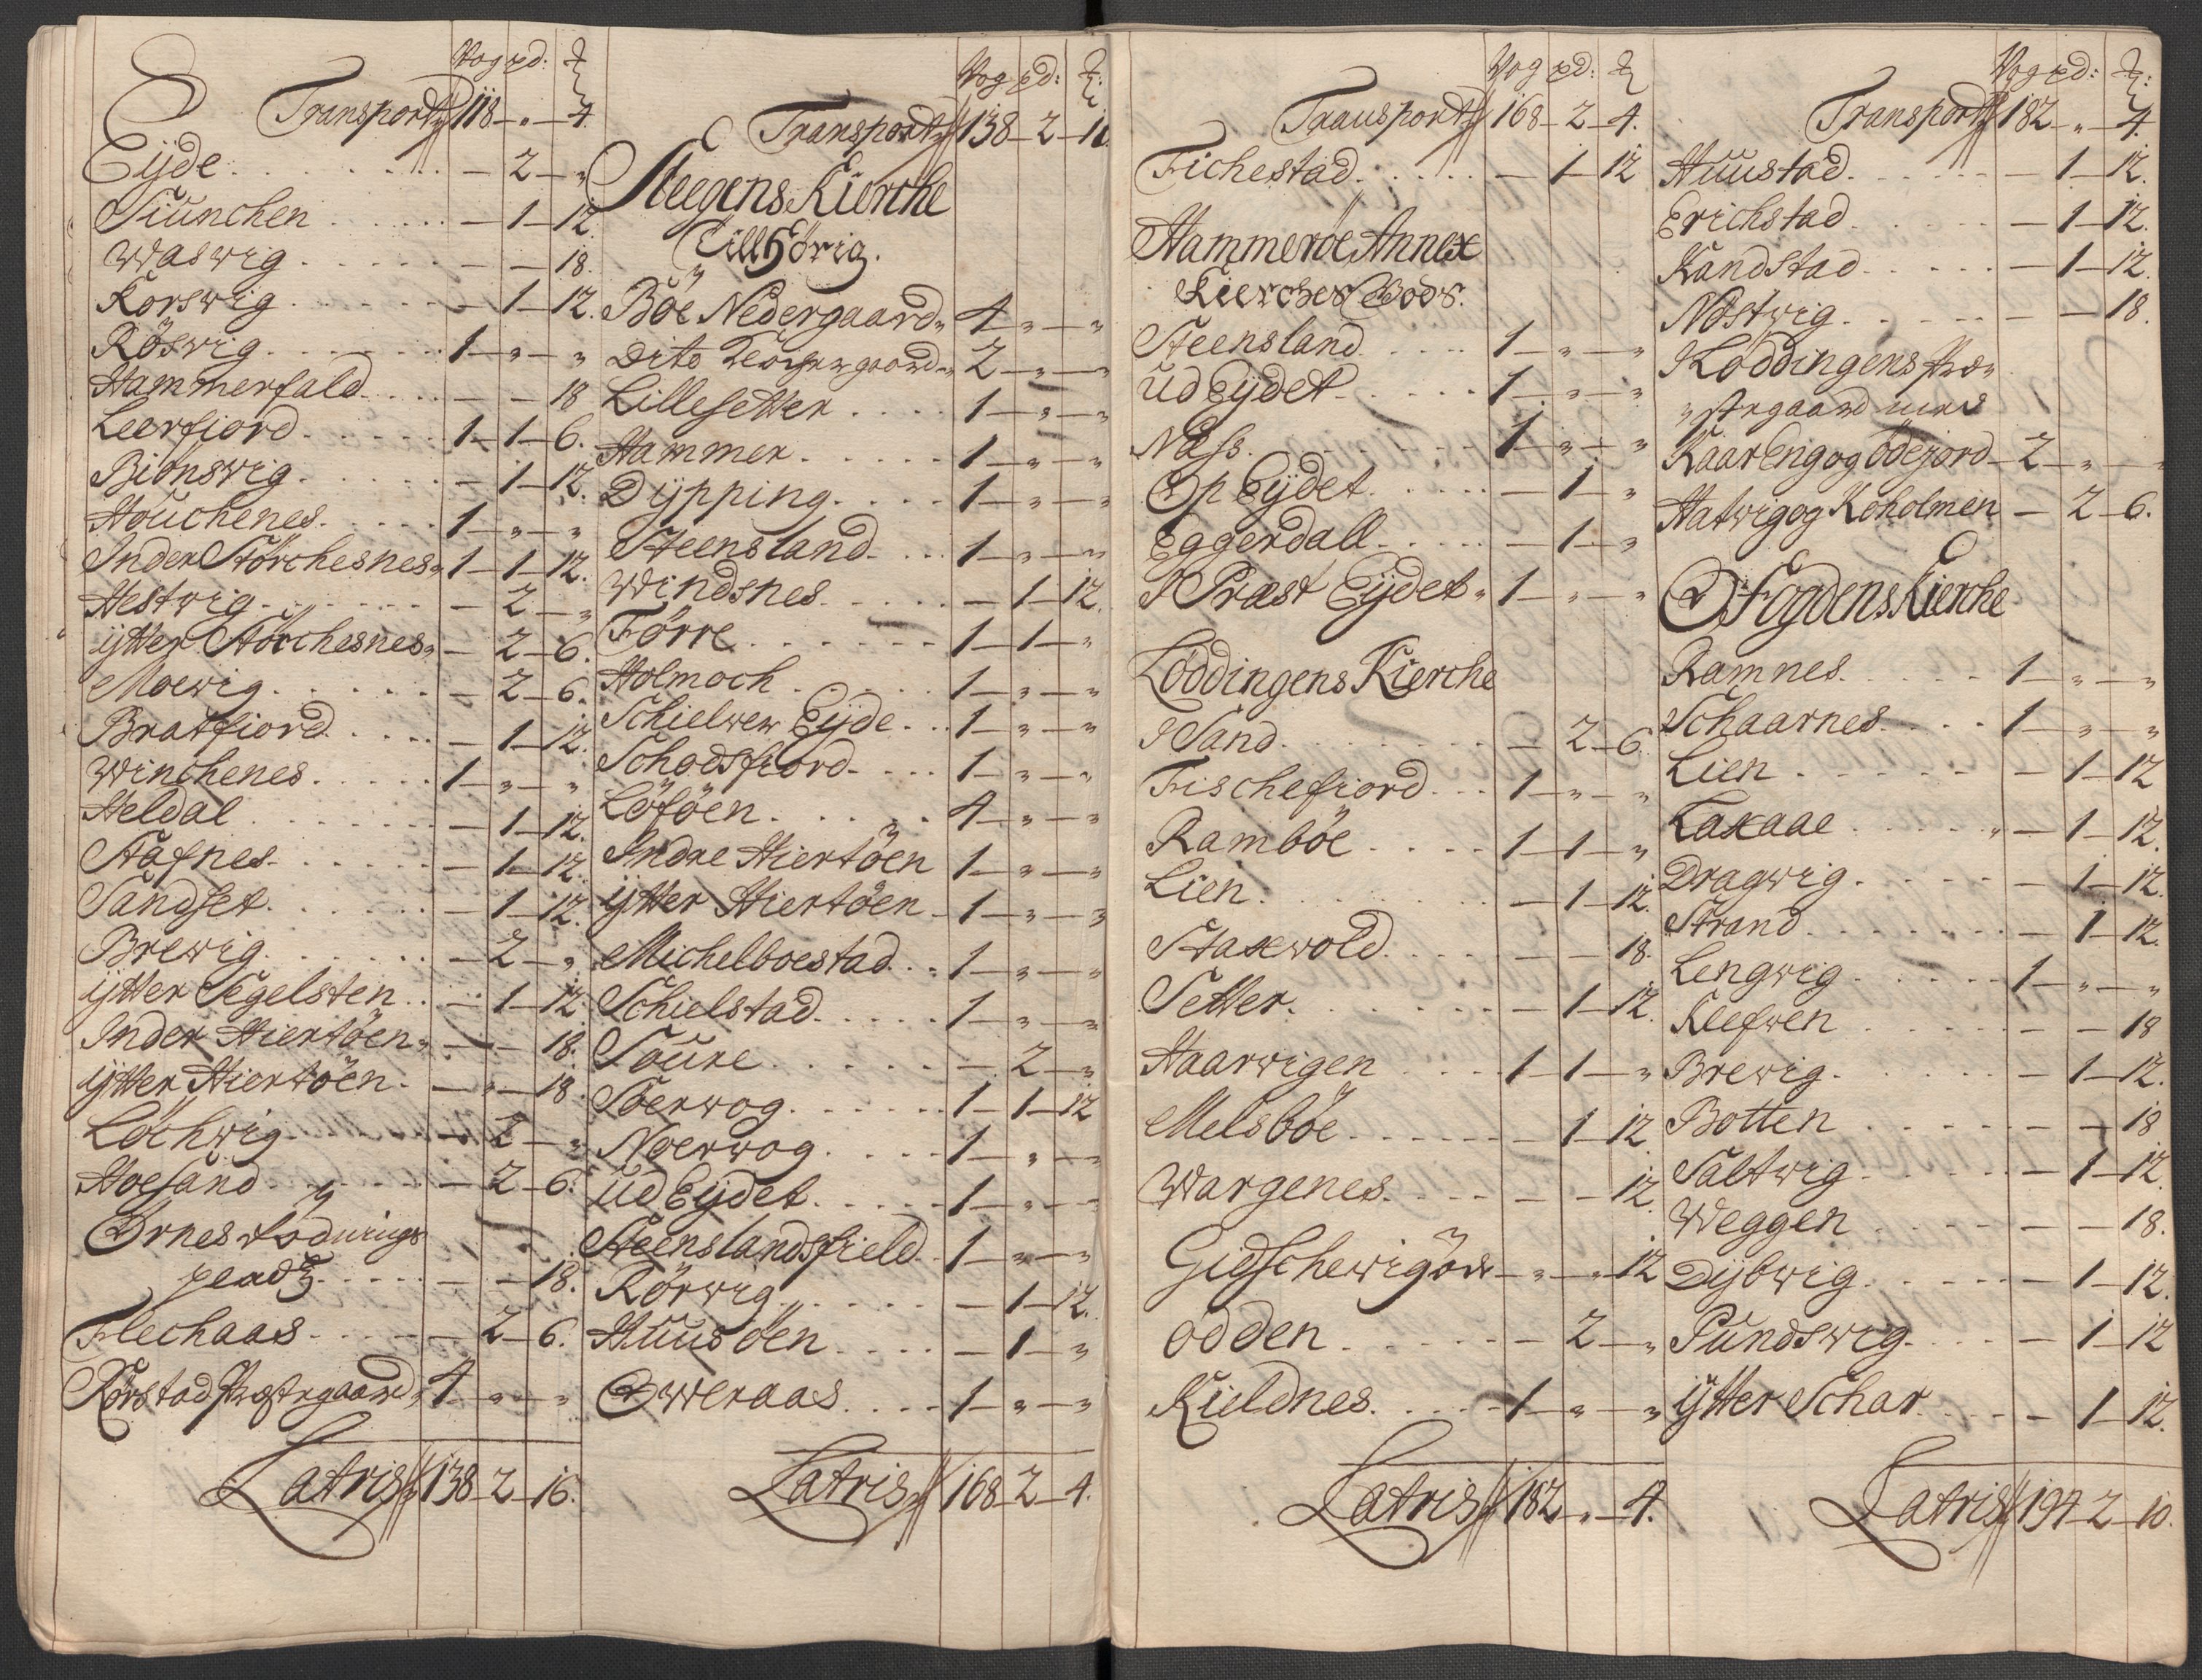 Vog pd: ℔
Transport 118 - „ - 4.
Eijde - 2 - „
Tiunchen - 1 - 12.
Waswig - - 18.
Korswig - 1 - 12.
Röswig 1 - „ - „
Hammerfald - - 18
Leerfiord 1 - 1 - 6.
Biönswig - 1 - 12.
Houchenes 1 - „ - „
Inder Störchesnes 1 - 1 - 12.
Hestwig - 2 - „
ijtter Störchesnes - 2 - 6.
Moewig - 2 - 6.
Bratfiord - 1 - 12.
Winchenes 1 - „ - „
Heldal - 1 - 12.
Stafnes - 1 - 12.
Sandset - 1 - 12.
Brewig - 2 - „
ijtter Tegelsten - 1 - 12.
Inder Hiertöen - - 18.
ijtter Hiertöen - „ - 18.
Löchwig - 2 - „
Hoesand - 2 - 6.
Ørnes
- - 18.
Flechaas - 2 - 6.
Körstad Præstegaard 4 - „ - „
Latris 138 - 2 - 16.
Vog pd: ℔:
Transport 138 - 2 - 16.
Steegens Kierche
Till Hörig.
Böe Nedergaard 4 - „ - „
Dito 2 - „ - „
Lillesetter 1 - „ - „
Hammer 1 - „ - „
Dijpping 1 - „ - „
Steensland 1 - „ - „
Windsnes - 1 - 12.
Förre 1 - 1 - „
Holmoch 1 - „ - „
Schielwer Eijde 1 - „ - „
Schodsfiord 1 - „ - „
Löföen 4 - „ - „
Indre Hiertöen 1 - „ - „
ijtter Hiertöen 1 - „ - „
Michelboestad 1 - „ - „
Schielstad 1 - „ - „
Soure - 2 - „
Söerwog 1 - 1 - 12
Noerwog 1 - „ - „
Ud Eijdet 1 - „ - „
Steenslandsfield 1 - „ - „
Rörwig - 1 - 12.
Huusöen - 1 - „
Ow̃eraas 1 - „ - „
Latris 168 - 2 - 4.
Vog pd: ℔
Transport 168 - 2 - 4.
Fichestad - 1 - 12
Hammeröe Annex
Kierches Gods.
Steensland 1 - „ - „
Ud Eijdet 1 - „ - „
Næss 1 - „ - „
Op Eijdet - 1 - „
Eggerdall - 1 - „
Prast Eijdet 1 - „ - „
Löddingens Kierche
Sand - 2 - 6.
Fischefiord 1 - „ - „
Ramböe 1 - 1 - „
Lien - 1 - 12.
Staxwold - - 18.
Setter - 1 - 12.
Haarwigen 1 - 1 - „
Melsböe - 1 - 12
Wargenes - - 12
Gidschewigör - „ - 12
Odden - 2 - „
Kieldnes 1 - „ - „
Latris 182 - „ - 4.
Vog pd: ℔:
Transport 182 - „ - 4.
Huustad - 1 - 12.
Erichstad - 1 - 12.
Kandstad - 1 - 12.
Nöstwig - - 18.
Löddingens Præ„
„stegaard med
Kaareng og Ödejord - 2 - „ - „
Hatwig og Koholmen - 2 - 6.
Ofogdens Kierche
Ramnes 1 - „ - „
Schaarnes 1 - „ - „
Lien - 1 - 12
Laxaae - 1 - 12.
Dragwig - 1 - 12.
Strand - 1 - 12.
Lengwig 1 - „ - „
Klefwen - - 18
Brewig - 1 - 12.
Botten - - 18
Saltwig - 1 - 12.
Weggen - - 18.
Dijbwig - 1 - 12.
Pundswig - 1 - 12
ijtter Schar - 1 - 12.
Latris 194 - 2 - 10.